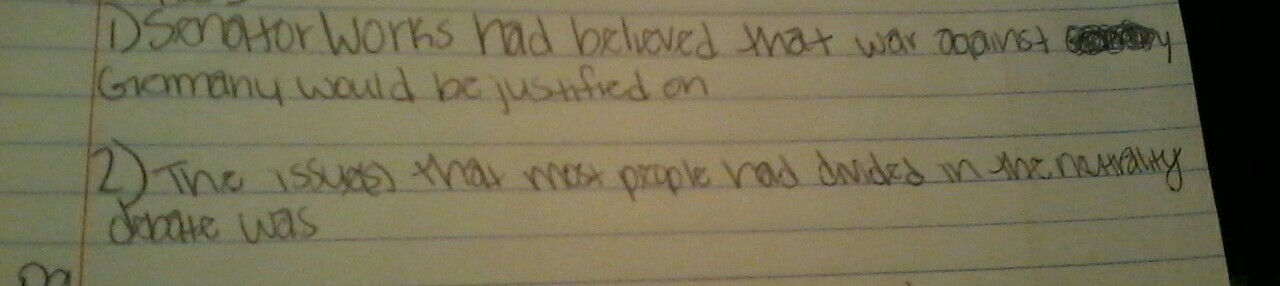 1) Senator Works had believed that war against
Germany would be justified on
2) The issue(s) that most people had divided in the nutrality
debate was